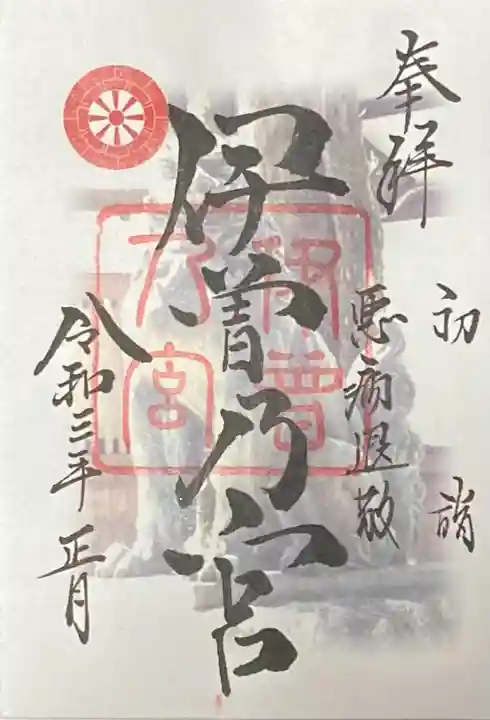 奉拝
初詣
悪病退散
伊曽乃宮
伊曽乃宮
令和三年 正月